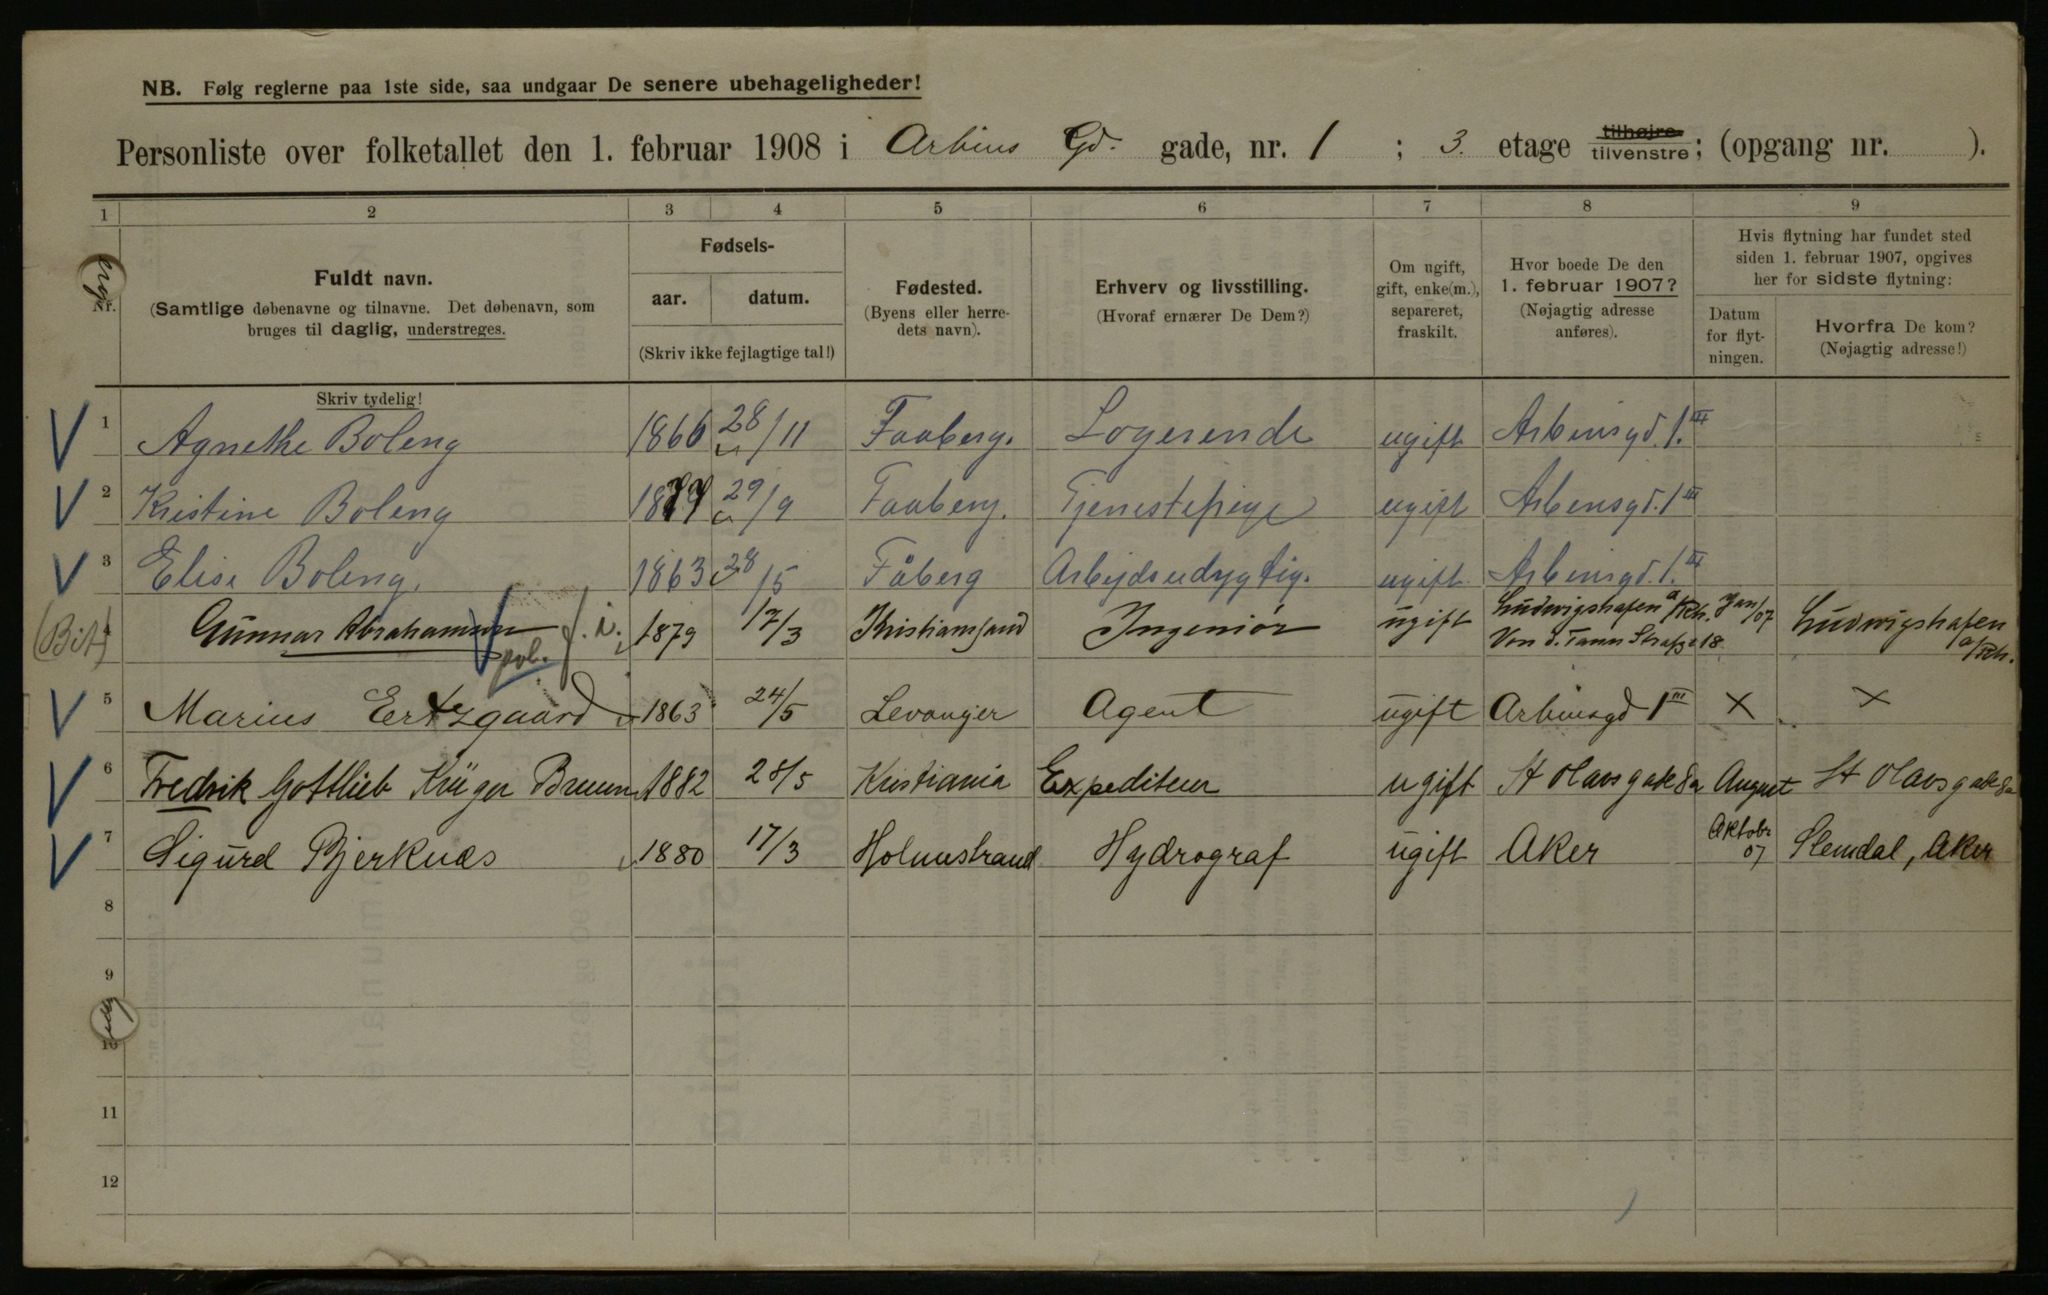 NB. Følg reglerne paa 1ste side, saa undgaar De senere ubehageligheder!
Personliste over folketallet den 1. februar 1908 i Arbins Gd. gade, nr. 1 ; 3. etage tilhøjre tilvenstre; (opgang nr. ).
1 2 3 4 5 6 7 8 9
Nr.
Fuldt navn.
(Samtlige døbenavne og tilnavne. Det døbenavn, som
bruges til daglig, understreges.
Skriv tydelig!
Fødsels-
aar. datum.
(Skriv ikke fejlagtige tal!)
Fødested.
(Byens eller herre-
dets navn).
Erhverv og livsstilling.
(Hvoraf ernærer De Dem?)
Om ugift,
gift, enke(m.),
separeret,
fraskilt.
Hvor boede De den
1. februar 1907?
(Nøjagtig adresse
anføres).
Hvis flytning har fundet sted
siden 1. februar 1907, opgives
her for sidste flytning:
Datum
for flyt-
ningen.
Hvorfra De kom?
(Nøjagtig adresse!)
1 Agnethe Boleng 1866 28/11 Faaberg. Logerende ugift Arbinsgd. 1. III
2 Kristine Boleng 1879 29/9 Faaberg. Tjenestepige ugift Arbensgd. 1 III
3 Elise Boleng. 1863 28/5 Fåberg Arbejdsudygtig. ugift Arbinsgd. 1. III
(Bit) 4 Gunnar Abrahamsen f. i. 1879 17/3 Kristianssand Ingeniør ugift Ludwigshafen a/Rh. Jan/07 Ludwigshafen
pob. Von d. Tann Straße 18 a/Rh.
5 Marius Ertzgaard 1863 24/5 Levanger Agent ugift Arbinsgd 1 III × ×
6 Fredrik Gottlieb Krüger Bruun 1882 28/5 Kristiania Expediteur ugift St Olavsgade 8a August St Olavsgade 8a
7 Sigurd Bjerknæs 1880 17/3 Holmestrand Hydrograf ugift Aker Aktobr 07 Slemdal, Aker
8
9
10
11
12